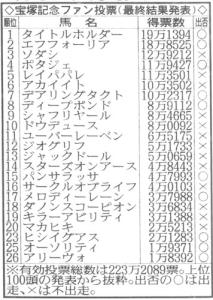 ◇宝塚記念ファン投票(最終結果発表)◇
順位 馬名 得票数 出否
1 タイトルホルダー 19万1394 ○
2 エフフォーリア 18万8525 ○
3 ソダシ ×
4 ポタジェ 11万9427 ○
5 レイパパレ 11万3501 ×
6 アカイイト 10万3502 ○
7 デアリングタクト 10万2317 ○
8 ディープボンド 8万9112 ○
9 シャフリヤール 8万4665 ×
10 ドウデュース ×
11 ユーバーレーベン 6万5175 ×
12 ジオグリフ 5万1753 ×
13 ジャックドール 5万0659 ×
14 スターズオンアース 4万8443 ×
15 パンサラッサ 4万7993 ○
16 サークルオブライフ 4万0103 ×
17 メロディーレーン ○
18 ダノンスコーピオン ×
19 キラーアビリティ 3万1388 ×
20 マカヒキ 2万5213 ×
ヒシイグアス ○
25 オーソリティ 1万9371 ○
26 アリーヴォ 1万8392 ○
※有効投票総数は223万2089票。上位
100頭の発表から抜粋。出否の○は出
走、×は不出走。